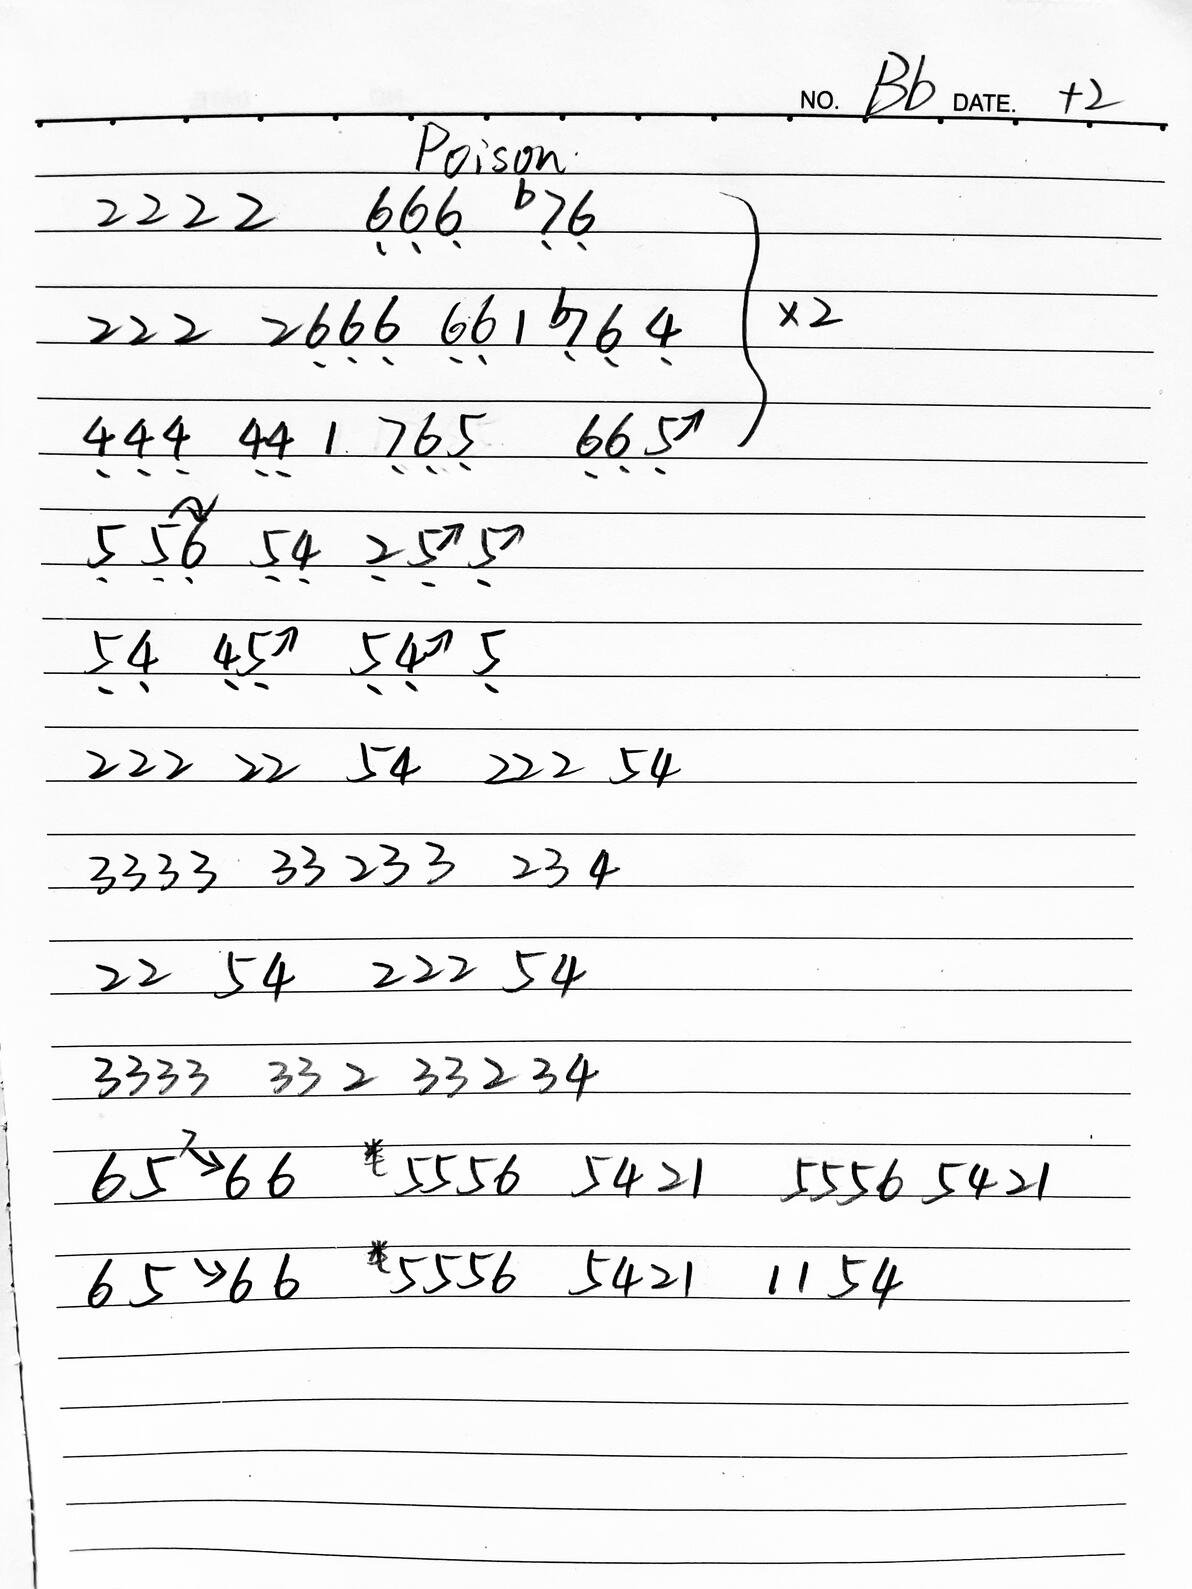 NO. Bb DATE. +2
Poison.
2 2 2 2 6̣6̣6̣ b7̣6̣
2 2 2 26̣6̣6̣ 6̣6̣1 b7̣6̣ 4̣ ×2
4̣4̣4̣ 4̣4̣ 1 7̣6̣5̣ 6̣6̣5̣↗
5̣ 5̣6̣ 5̣4̣ 2̣ 5̣↗ 5̣↗
5̣4̣ 4̣5̣↗ 5̣4̣↗ 5̣
2 2 2 2 2 54 2 2 2 54
3333 33 233 234
22 54 222 54
3333 33 2 33 2 34
65↘66 *5556 5421 5556 5421
65↘66 *5556 5421 11 54